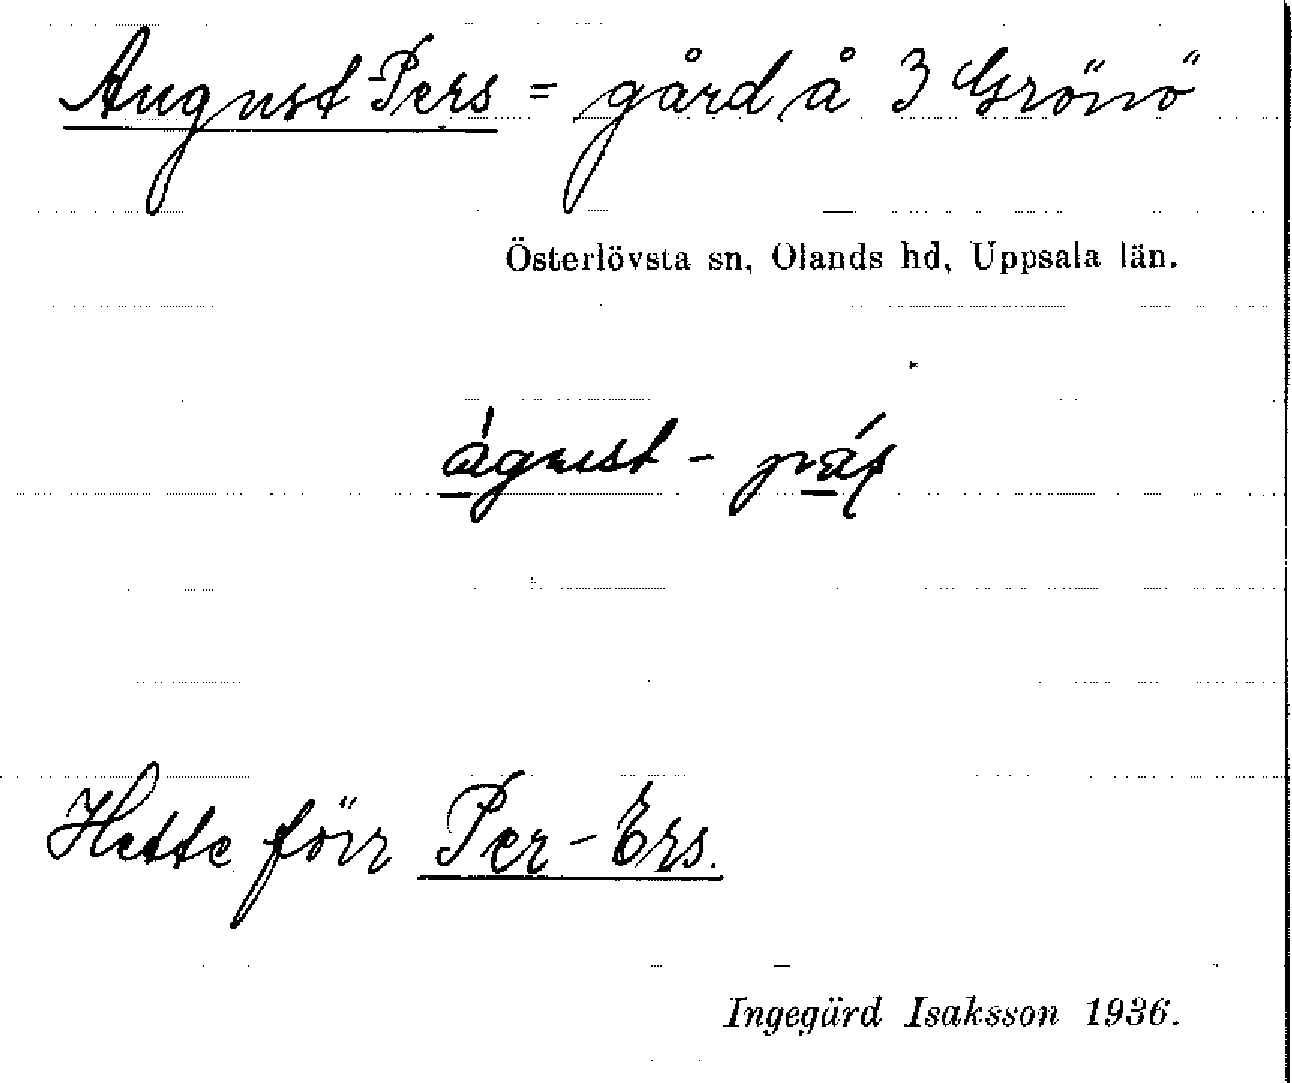 August Pers = gård å 3 Grönö
Österlövsta sn, Olands hd, Uppsala län.
Hette förr Per-Ers.
Ingegärd Isaksson 1936.